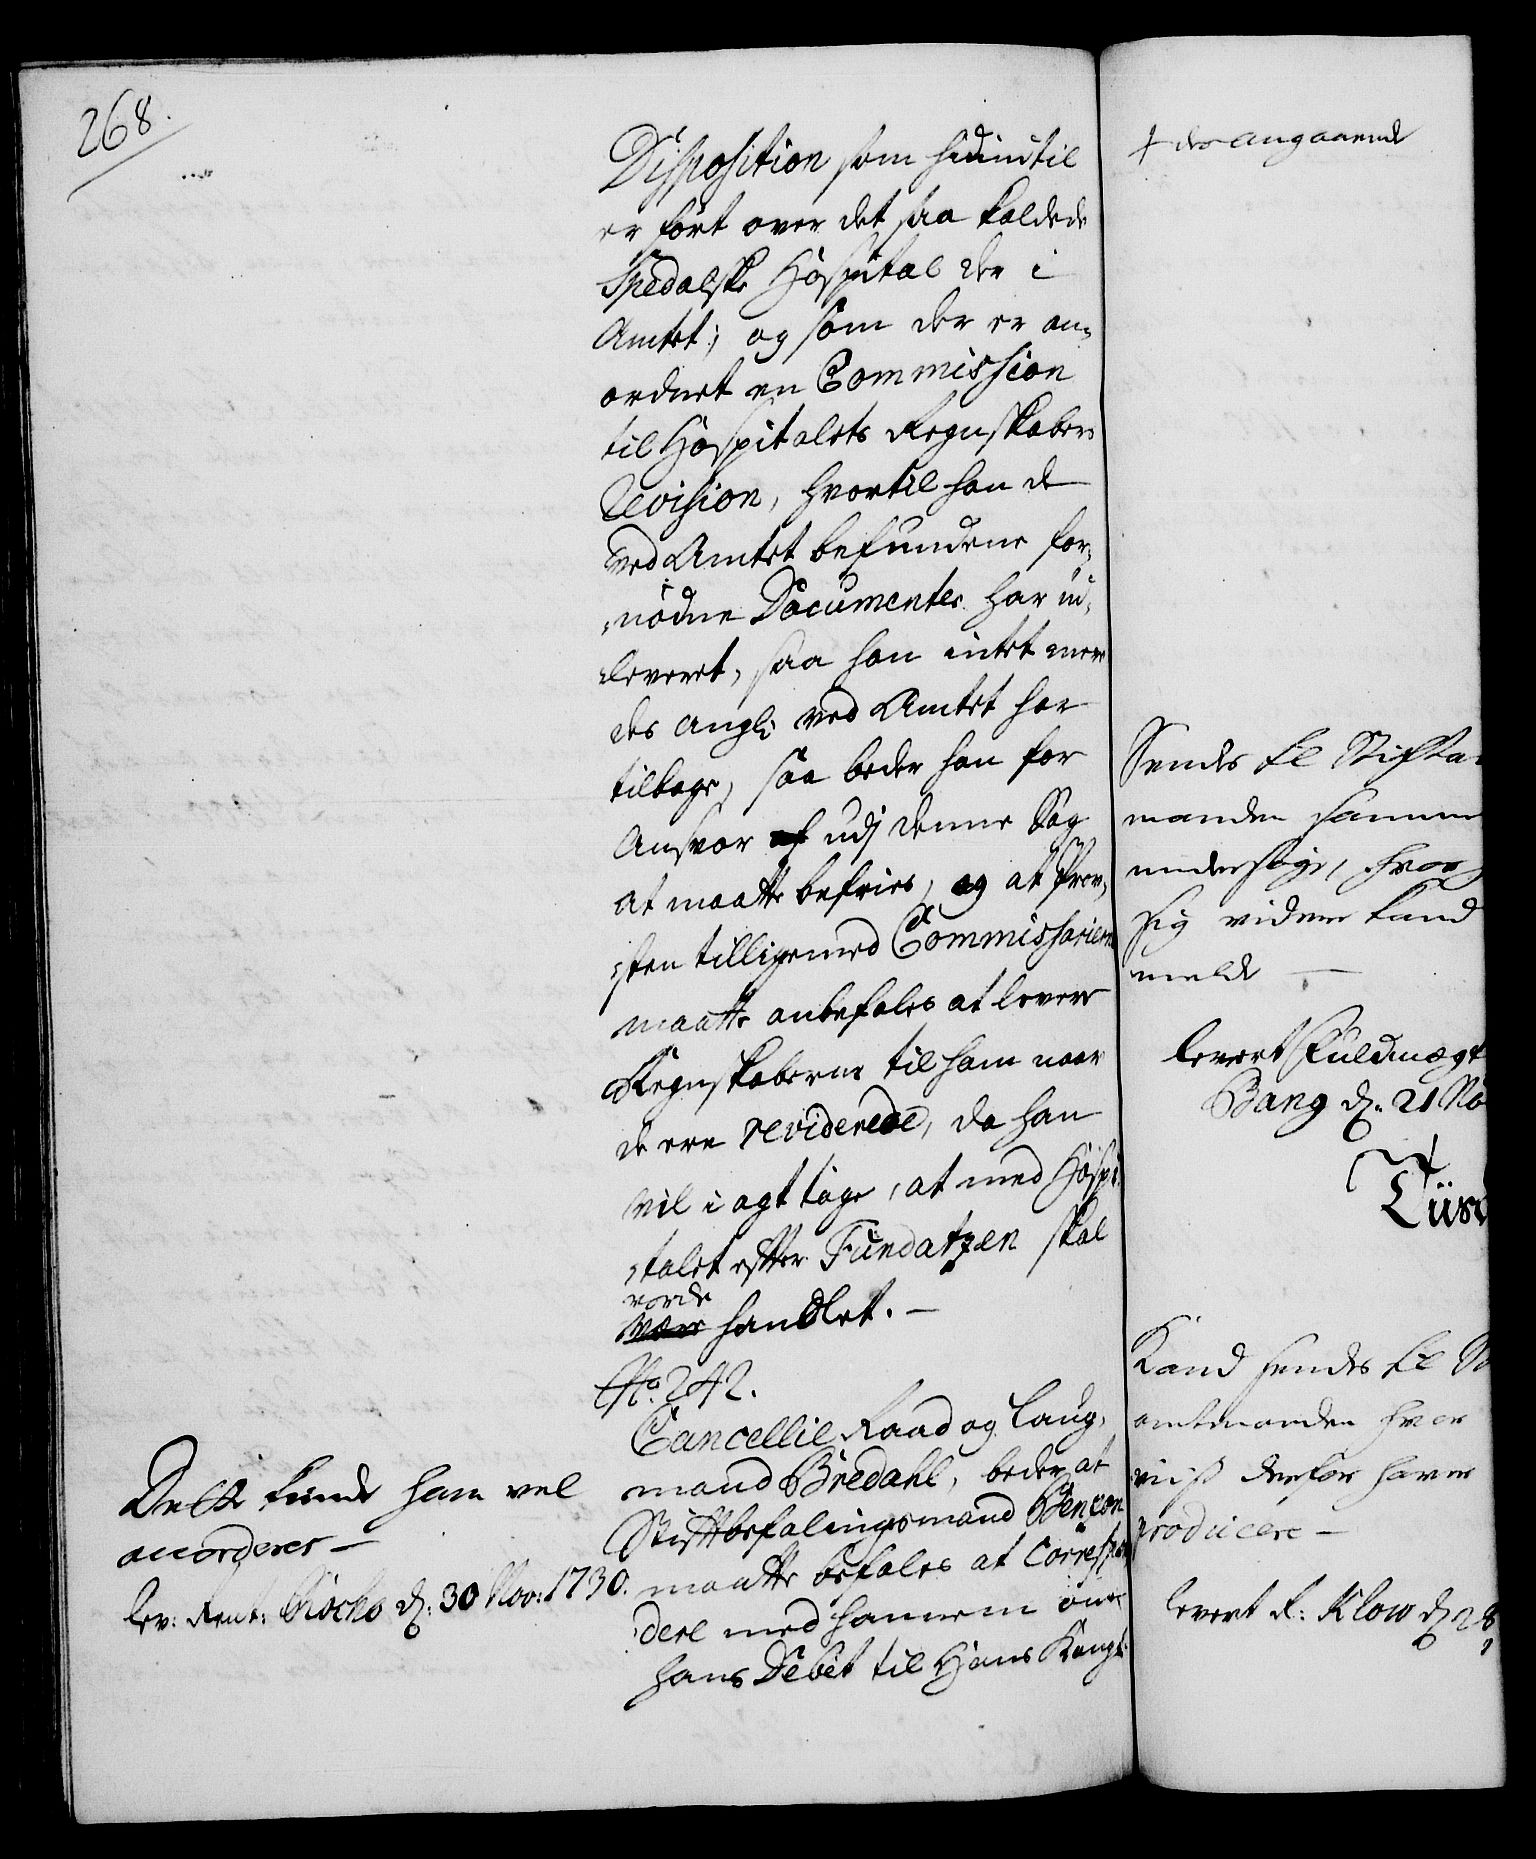 268.
Disposition som hidindtil
er ført over det saa kaldede
Spedalske Hospital der i
Amtet; og som der er an-
ordnet en Commission
til Hospitalets Regnskabers
Revision, hvortil han de
ved Amtet befundene for-
nødne Documenter har ud-
leveret, saa han intet mere
des angl: ved Amtet har
tilbage, saa beder han for
Ansvar udj denne Sag
at maatte befries, og at Prov-
sten tilligemed Commissarierne
maatte anbefales at levere
Regnskaberne til ham naar
de ere reviderede, da han
vil i agt tage, at med Hospi-
talet efter Fundatzen skal
vorde
være handlet. -
No. 242.
Cancellie Raad og Laug-
mand Bredahl, beder at
Stiftbefalingsmand Benzon
maatte befales at Correspon-
dere med hannem om
hans Debet til Hans Kongl:
Dette kunde ham vel
accorderes -
lev: Rent: d: 30 Nov: 1730.
+ des angaaende
Sendes til Stiftamt
manden hannem
undersøge, hvor
sig videre kand
melde -
levert Fuldmægt
Bang d: 21 No
Kand sendes til St
amtmanden hvor
viiss derfor haver
producere -
levert R: Klow d 28